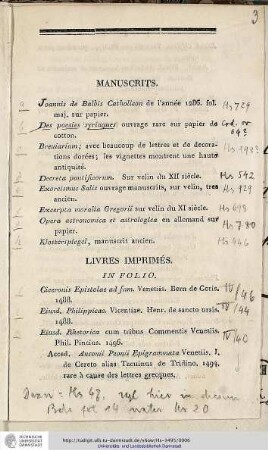 3
MANUSCRITS.
Joannis de Balbis Catholicon de l'année 1286. fol.
maj. sur papier. Hs 729
Des poesies syriaques ouvrage rare sur papier de
coton.
Breviarium; avec beaucoup de lettres et de decora-
tions dorées; les vignettes montrent une haute
antiquité.
Decreta pontificorum. Sur velin du XII siècle. Hs 542
Exorcismus Salis ouvrage manuscrits, sur velin, tres
ancien.
Excerpta moralia Gregorii sur velin du XI siècle. Hs 698
Opera astronomica et astrologica en allemand sur
papier. Hs 780
Klosterspiegel, manuscrit ancien. Hs 466
LIVRES IMPRIMÉS.
IN FOLIO.
Ciceronis Epistolae ad fam. Venetiis. Born de Coris.
1488. IV/46
Eiusd. Philippicae. Vicentiae. Henr. de sancto urais.
1488. IV/44
Eiusd. Rhetorica cum tribus Commentis Venetiis.
Phil. Pincius. 1496. IV/40
Acced. Ausonii Peonii Epigrammata Venetiis, J.
de Cereto alias Tacuinus de Tridino, 1494.
rare à cause des lettres grecques.
Hs 47, vgl hier in diesem
Bde fol 14 unter Hs 20
http://tudigit.ulb.tu-darmstadt.de/show/Hs-3495/0006
Universitäts- und Landesbibliothek Darmstadt